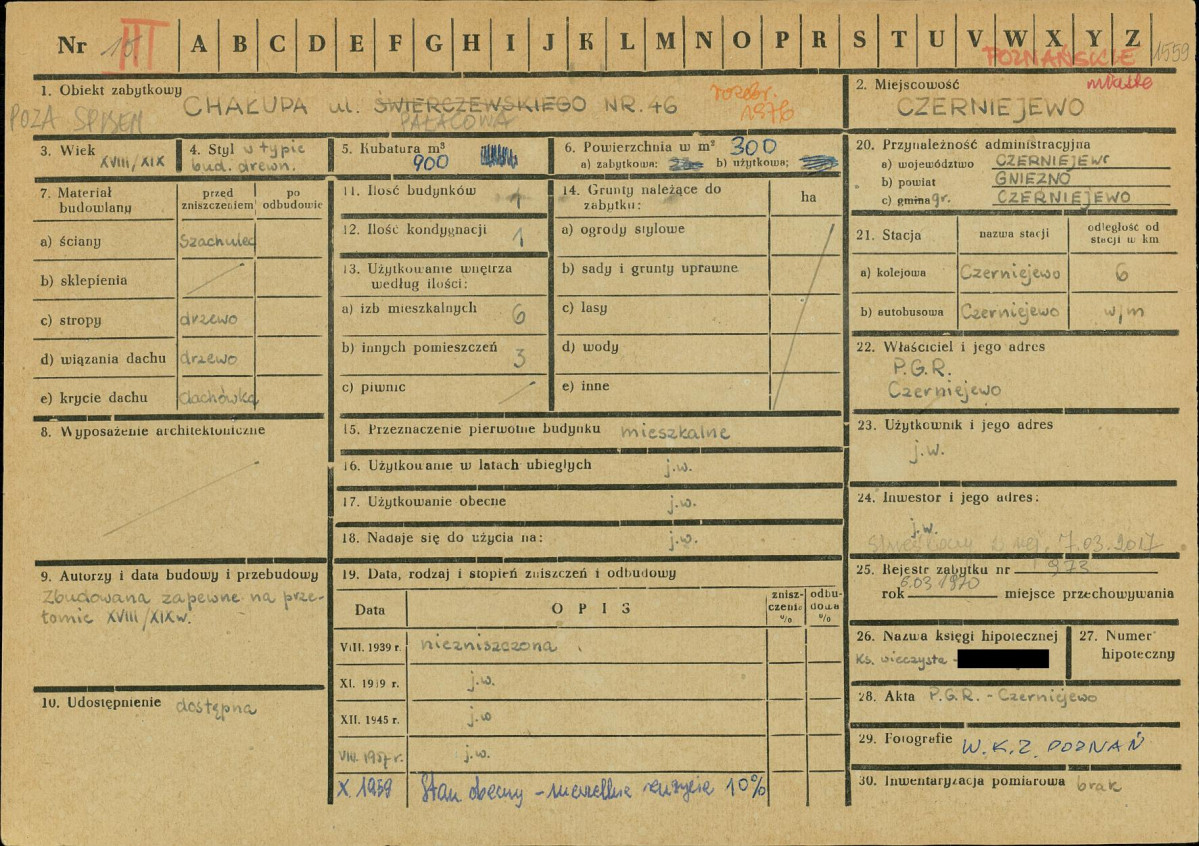 Nr 10 III A B C D E F G H I J K L M N O P R S T U V W X Y Z
POZNAŃSKIE 1559
miasto
1. Obiekt zabytkowy
CHAŁUPA ul. ŚWIERCZEWSKIEGO NR. 46
PAŁACOWA
POZA SPISEM
rozebr.
1976
2. Miejscowość
CZERNIEJEWO
3. Wiek
XVIII/XIX
4. Styl w typie
bud. drewn.
5. Kubatura m³
900
6. Powierzchnia w m² 300
a) zabytkowa: b) użytkowa:
20. Przynależność administracyjna
a) województwo CZERNIEJEW
b) powiat GNIEZNO
c) gmina gr. CZERNIEJEWO
7. Materiał budowlany
przed zniszczeniem
po odbudowie
a) ściany Szachulec
b) sklepienia
c) stropy drzewo
d) wiązania dachu drzewo
e) krycie dachu dachówka
11. Ilość budynków 1
12. Ilość kondygnacji 1
13. Użytkowanie wnętrza
według ilości:
a) izb mieszkalnych 6
b) innych pomieszczeń 3
c) piwnic
14. Grunty należące do
zabytku: ha
a) ogrody stylowe
b) sady i grunty uprawne
c) lasy
d) wody
e) inne
21. Stacja
nazwa stacji
odległość od
stacji w km
a) kolejowa Czerniejewo 6
b) autobusowa Czerniejewo w/m
22. Właściciel i jego adres
P.G.R.
Czerniejewo
8. Wyposażenie architektoniczne
15. Przeznaczenie pierwotne budynku mieszkalne
16. Użytkowanie w latach ubiegłych j.w.
17. Użytkowanie obecne j.w.
18. Nadaje się do użycia na: j.w.
23. Użytkownik i jego adres
j.w.
24. Inwestor i jego adres:
j.w.
z rej. 7.03.2017
25. Rejestr zabytku nr 973
6.03 1970
rok miejsce przechowywania
9. Autorzy i data budowy i przebudowy
Zbudowana zapewne na prze-
łomie XVIII/XIX w.
19. Data, rodzaj i stopień zniszczeń i odbudowy
Data OPIS
znisz-
czenie
%
odbu-
dowa
%
VIII. 1939 r. niezniszczona
XI. 1939 r. j.w.
XII. 1945 r. j.w
VIII. 1957 r. j.w.
X. 1959 Stan obecny - niewielkie zużycie 10%
26. Nazwa księgi hipotecznej
Ks. wieczysta -
27. Numer
hipoteczny
10. Udostępnienie dostępna
28. Akta P.G.R. - Czerniejewo
29. Fotografie W.K.Z. POZNAŃ
30. Inwentaryzacja pomiarowa brak